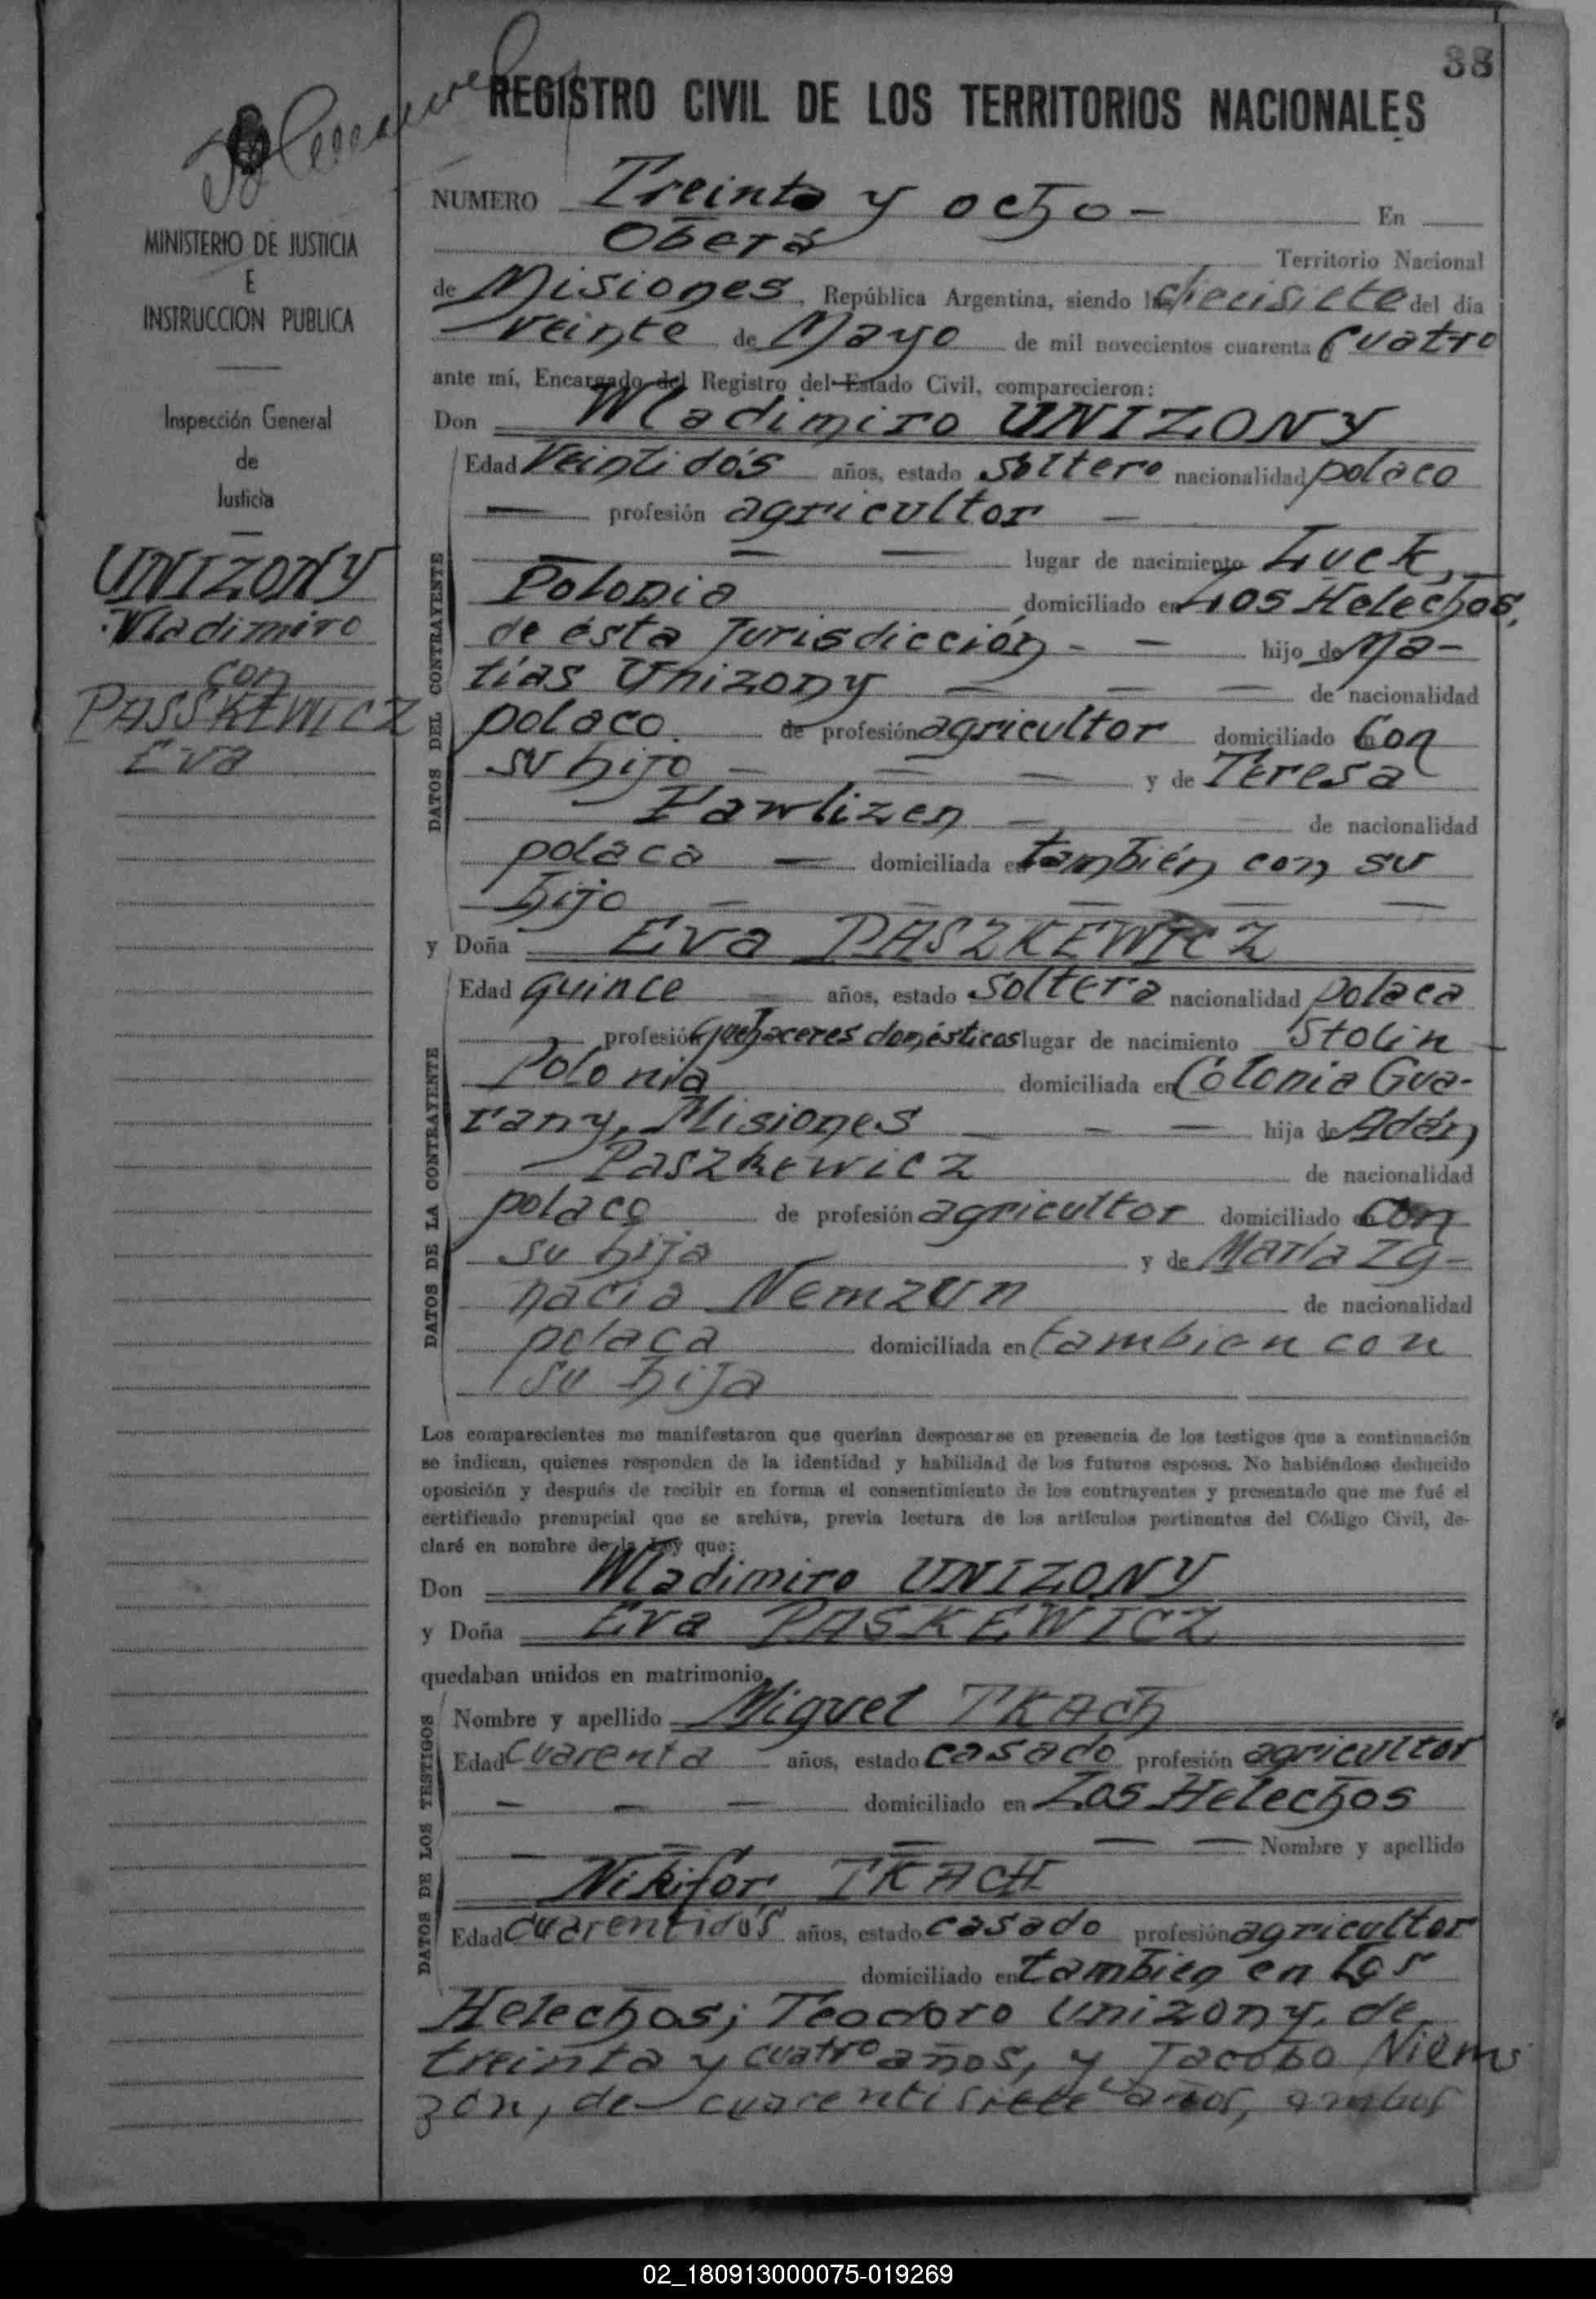 38
REGISTRO CIVIL DE LOS TERRITORIOS NACIONALES
NUMERO Treinta y ocho - En
Oberá Territorio Nacional
de Misiones, República Argentina, siendo las diecisiete del día
veinte de Mayo de mil novecientos cuarenta cuatro
ante mí, Encargado del Registro del Estado Civil, comparecieron:
Don Wladimiro UNIZONY
Edad Veintidós años, estado soltero nacionalidad polaco
profesión agricultor
lugar de nacimiento Luck,
Polonia domiciliado en Los Helechos,
de ésta Jurisdicción - - hijo de Ma-
tías Unizony de nacionalidad
polaco. de profesión agricultor domiciliado con
su hijo y de Teresa
Pawlizen de nacionalidad
polaca domiciliada en también con su
hijo
y Doña Eva PASZKEWICZ
Edad quince años, estado soltera nacionalidad polaca
profesión quehaceres domésticos lugar de nacimiento Stolin
Polonia domiciliada en Colonia Gua-
rany, Misiones hija de Adán
Paszkewicz de nacionalidad
polaco de profesión agricultor domiciliado en con
su hija y de María Ig-
nacia Nemzun de nacionalidad
polaca domiciliada en tambien con
su hija
Los comparecientes me manifestaron que querían desposarse en presencia de los testigos que a continuación
se indican, quienes responden de la identidad y habilidad de los futuros esposos. No habiéndose deducido
oposición y después de recibir en forma el consentimiento de los contrayentes y presentado que me fué el
certificado prenupcial que se archiva, previa lectura de los artículos pertinentes del Código Civil, de-
claré en nombre de la Ley que:
Don Wladimiro UNIZONY
y Doña Eva PASKEWICZ
quedaban unidos en matrimonio.
Nombre y apellido Miguel TKAch
Edad cuarenta años, estado casado profesión agricultor
domiciliado en Los Helechos
Nombre y apellido
Nikifor TKACH
Edad cuarentidós años, estado casado profesión agricultor
domiciliado en tambien en Los
Helechos; Teodoro Unizony, de
treinta y cuatro años, y Jacobo Niems
zon, de cuarentisiete años, ambos
MINISTERIO DE JUSTICIA
E
INSTRUCCION PUBLICA
Inspección General
de
Justicia
UNIZONY
Wladimiro
con
PASSKEWICZ
Eva
DATOS DEL CONTRAYENTE
DATOS DE LA CONTRAYENTE
DATOS DE LOS TESTIGOS
02_180913000075-019269